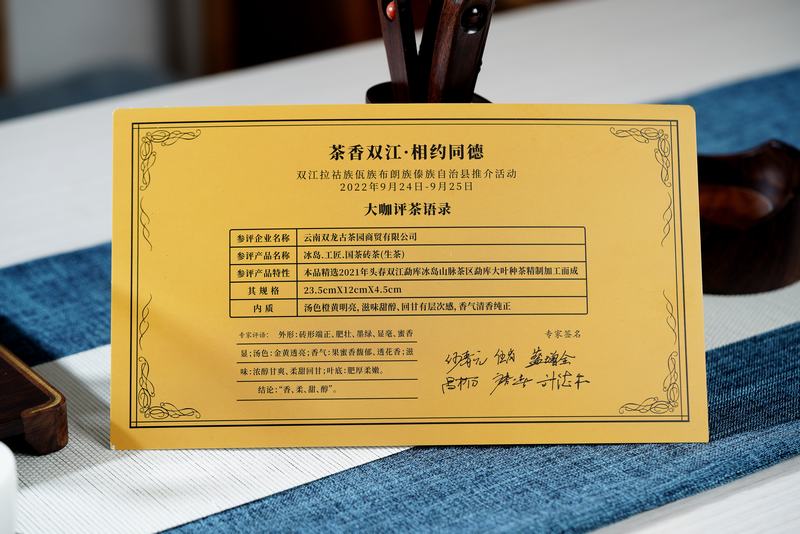 茶香双江·相约同德
双江拉祜族佤族布朗族傣族自治县推介活动
2022年9月24日-9月25日
大咖评茶语录
参评企业名称 云南双龙古茶园商贸有限公司
参评产品名称 冰岛.工匠.国茶砖茶(生茶)
参评产品特性 本品精选2021年头春双江勐库冰岛山脉茶区勐库大叶种茶精制加工而成
其规格 23.5cmX12cmX4.5cm
内质 汤色橙黄明亮,滋味甜醇、回甘有层次感,香气清香纯正
专家评语: 外形:砖形端正、肥壮、墨绿、显毫、蜜香
显;汤色:金黄透亮;香气:果蜜香馥郁、透花香;滋
味:浓醇甘爽、柔甜回甘;叶底:肥厚柔嫩。
结论:“香、柔、甜、醇”。
专家签名